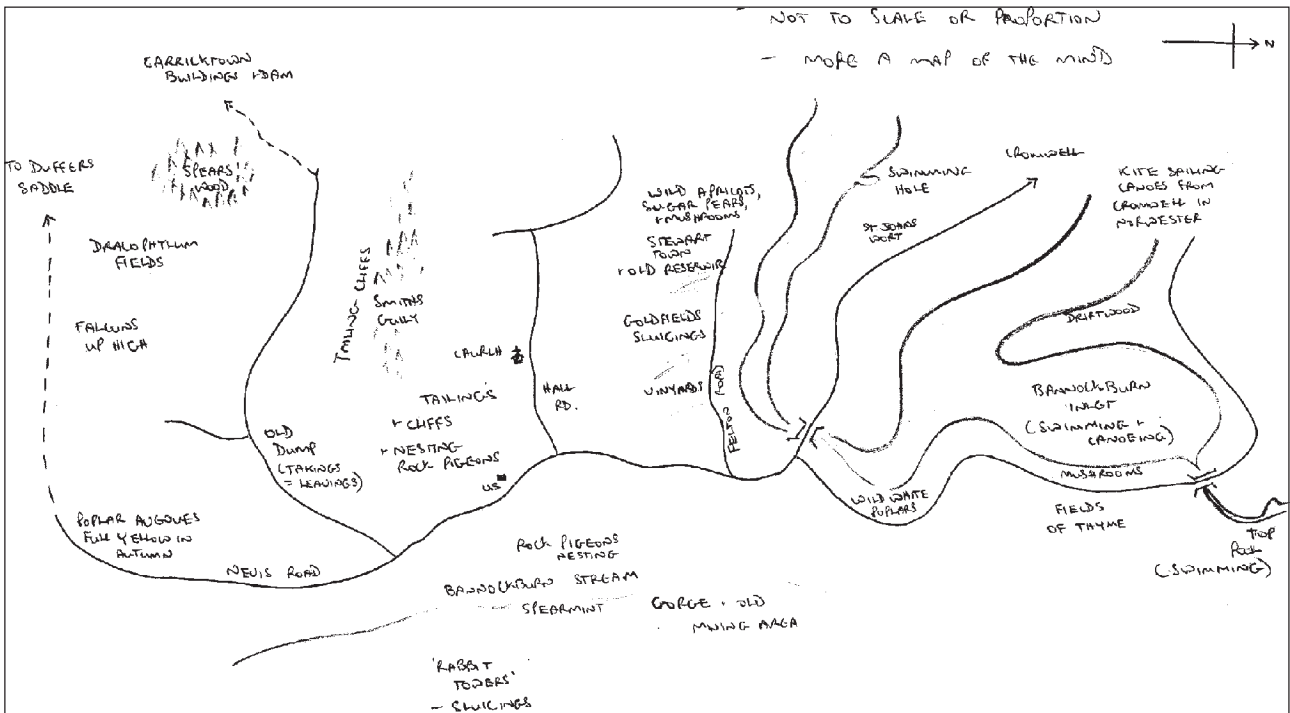 - NOT TO SCALE OR PROPORTION
- MORE A MAP OF THE MIND
N
CARRICKTOWN
BUILDINGS + DAM
TO DUFFERS
SADDLE
SPEARS
WOOD
DRACOPHYLLUM
FIELDS
FALCONS
UP HIGH
TAILING CLIFFS
SMITHS
GULLY
CHURCH
HALL
RD.
TAILINGS
+ CLIFFS
+ NESTING
ROCK PIGEONS
US
OLD
DUMP
(TAKINGS
= LEAVINGS)
POPLAR AVENUES
FULL YELLOW IN
AUTUMN
NEVIS ROAD
WILD APRICOTS,
SUGAR PEARS,
+ MUSHROOMS
STEWART
TOWN
+ OLD RESERVOIR
GOLDFIELDS
SLUICINGS
VINYARDS
FELTON ROAD
SWIMMING
HOLE
ST JOHNS
WORT
CROMWELL
KITE SAILING
CANOES FROM
CROMWELL IN
NORWESTER
DRIFTWOOD
BANNOCKBURN
INLET
(SWIMMING +
CANOEING)
MUSHROOMS
WILD WHITE
POPLARS
FIELDS
OF THYME
(SWIMMING)
ROCK PIGEONS
NESTING
BANNOCKBURN STREAM
SPEARMINT
GORGE + OLD
MINING AREA
'RABBIT
TOWERS'
- SLUICINGS